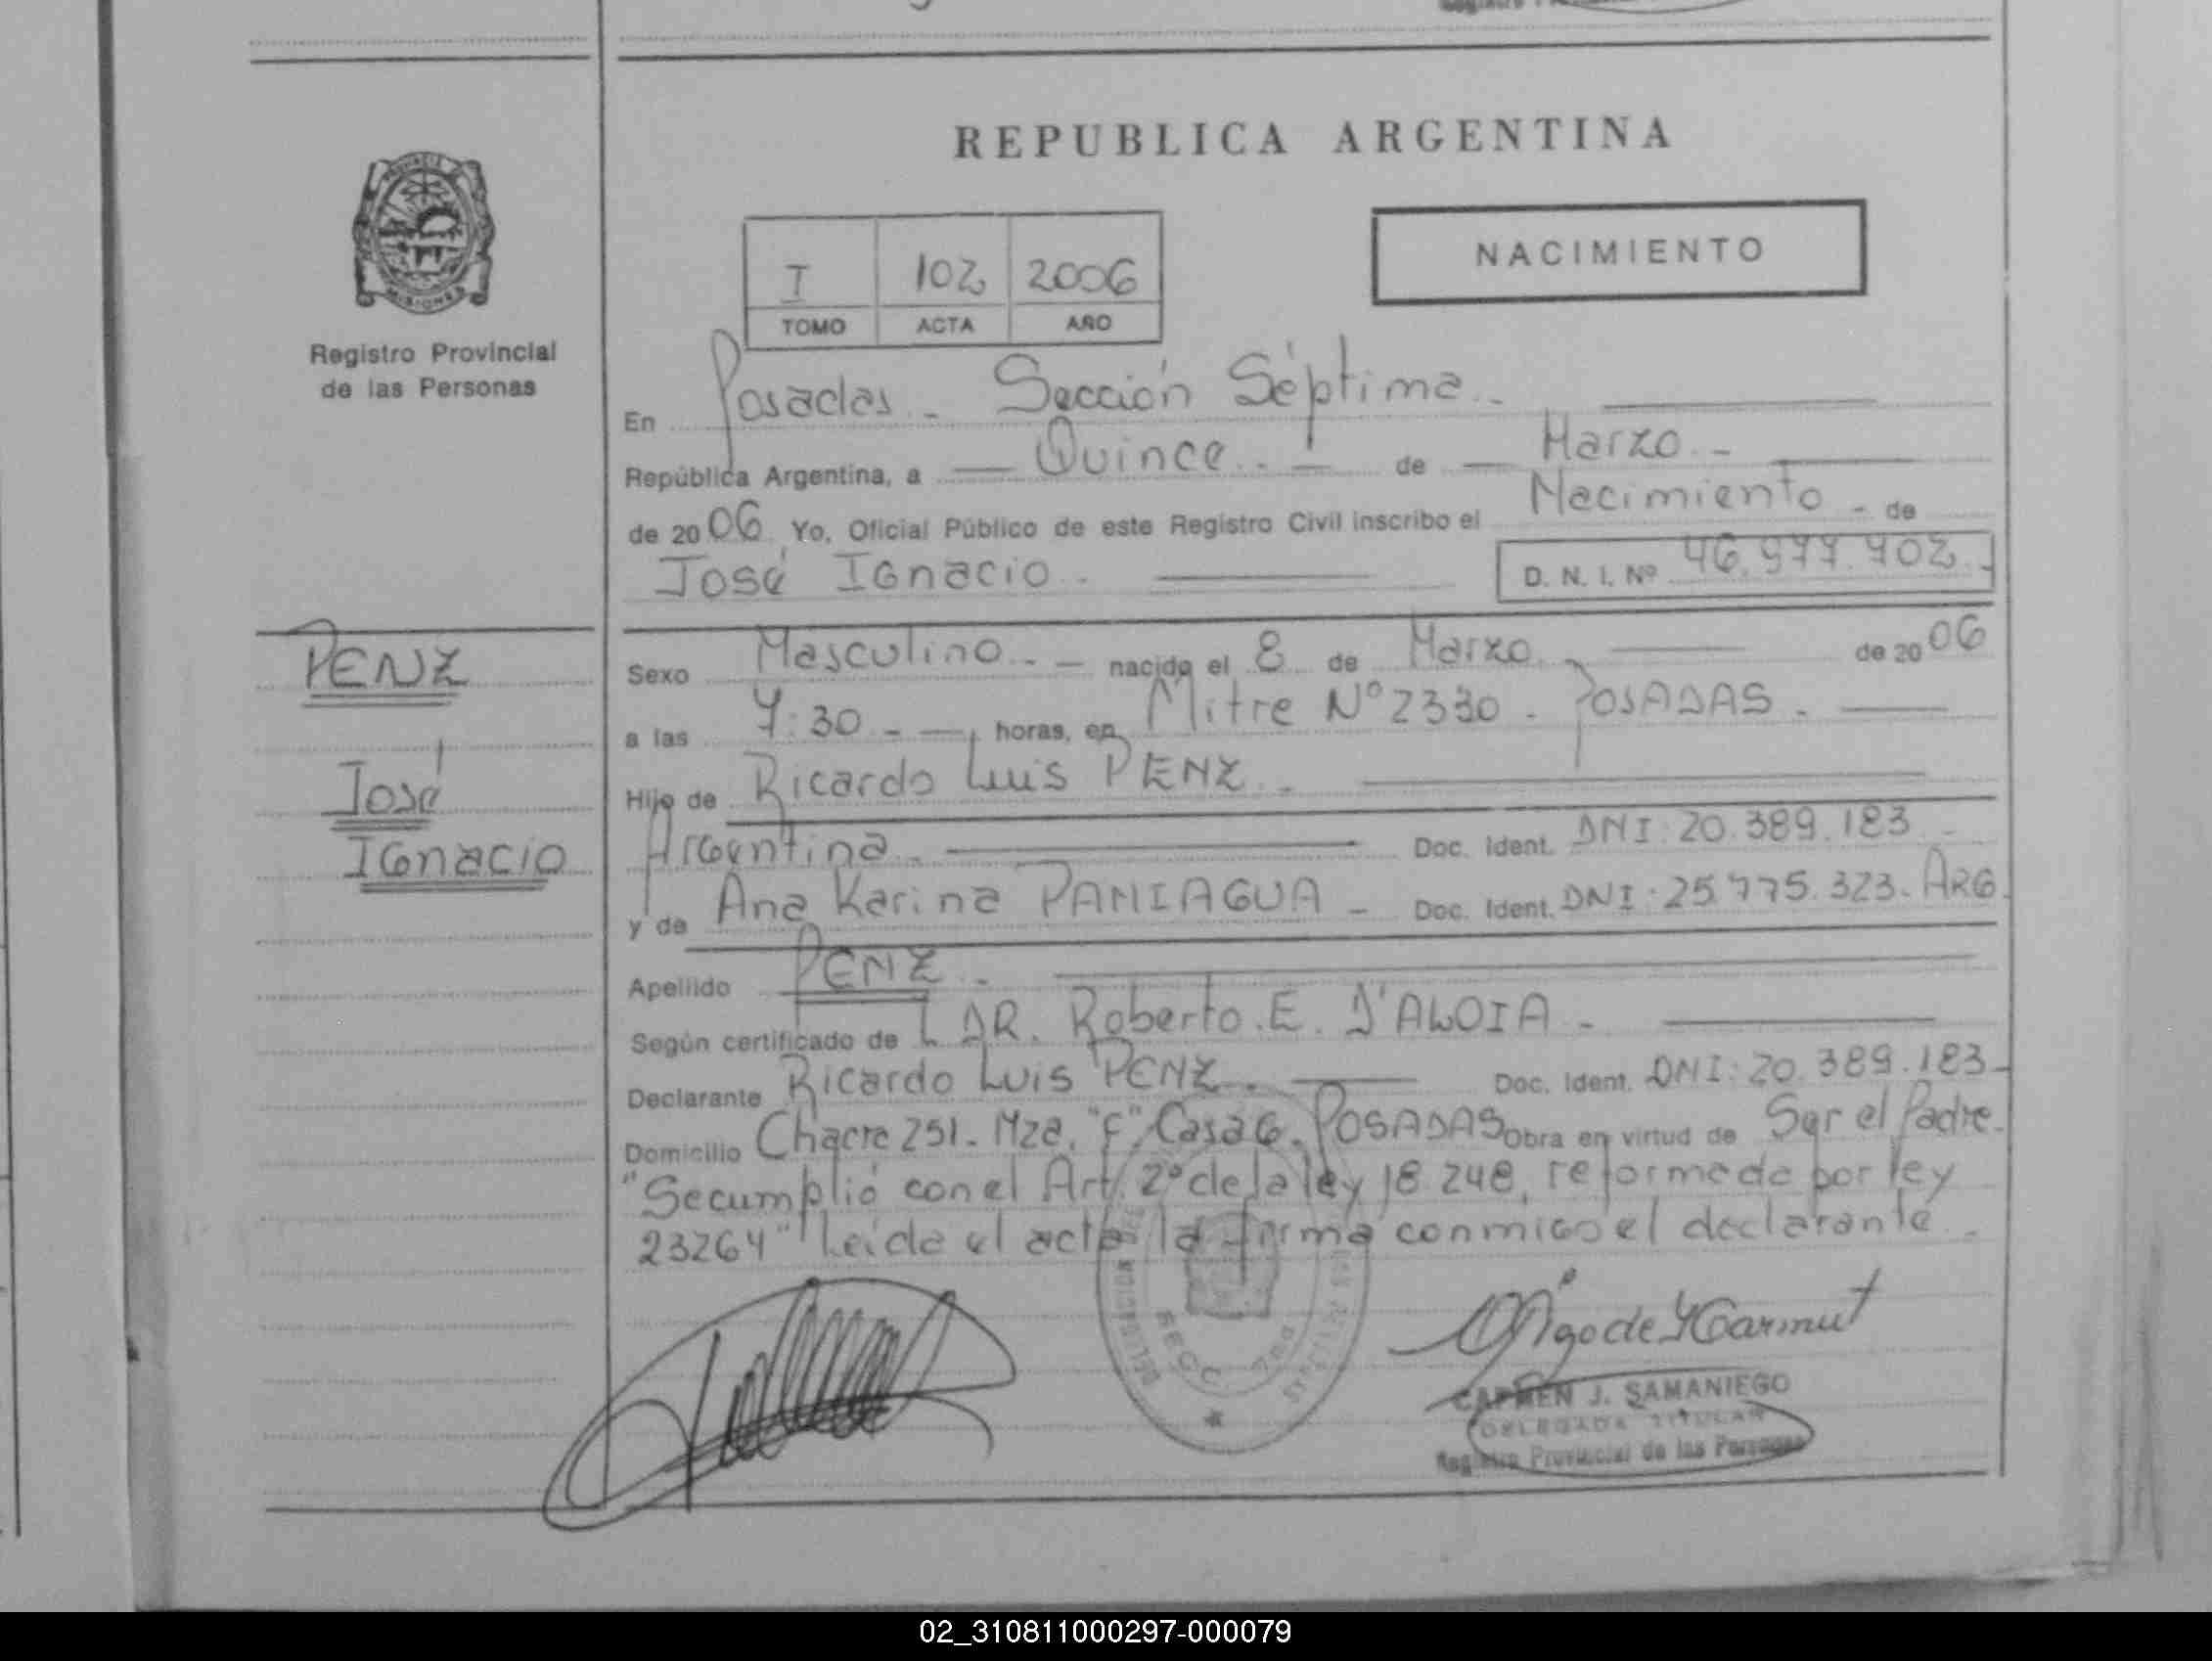 REPUBLICA ARGENTINA
NACIMIENTO
I 102 2006
TOMO ACTA AÑO
MISIONES
Registro Provincial
de las Personas
En Posadas - Sección Séptima.-
República Argentina, a Quince.- de Marzo.-
de 2006 Yo, Oficial Público de este Registro Civil inscribo el Nacimiento - de
José Ignacio.- D. N. I. Nº 46.977.702.-
PENZ
José
Ignacio
Sexo Masculino.- nacido el 8 de Marzo.- de 2006
a las 7:30 - horas, en Mitre Nº 2330 - POSADAS.-
Hijo de Ricardo Luis PENZ.-
Argentina.- Doc. Ident. DNI: 20.389.183.-
y de Ana Karina PANIAGUA - Doc. Ident. DNI: 25.775.323. ARG.
Apellido PENZ.-
Según certificado de L DR. Roberto. E. D'ALOIA.-
Declarante Ricardo Luis PENZ.- Doc. Ident. DNI: 20.389.183-
Domicilio Chacra 251. Mza. "F", Casa 6. POSADAS Obra en virtud de Ser el Padre.
"Se cumplió con el Art. 2º de la ley 18.248, reformada por ley
23264" Leída el acta la firma conmigo el declarante.
SECC 7ma
CARMEN J. SAMANIEGO
DELEGADA TITULAR
Registro Provincial de las Personas
02_310811000297-000079